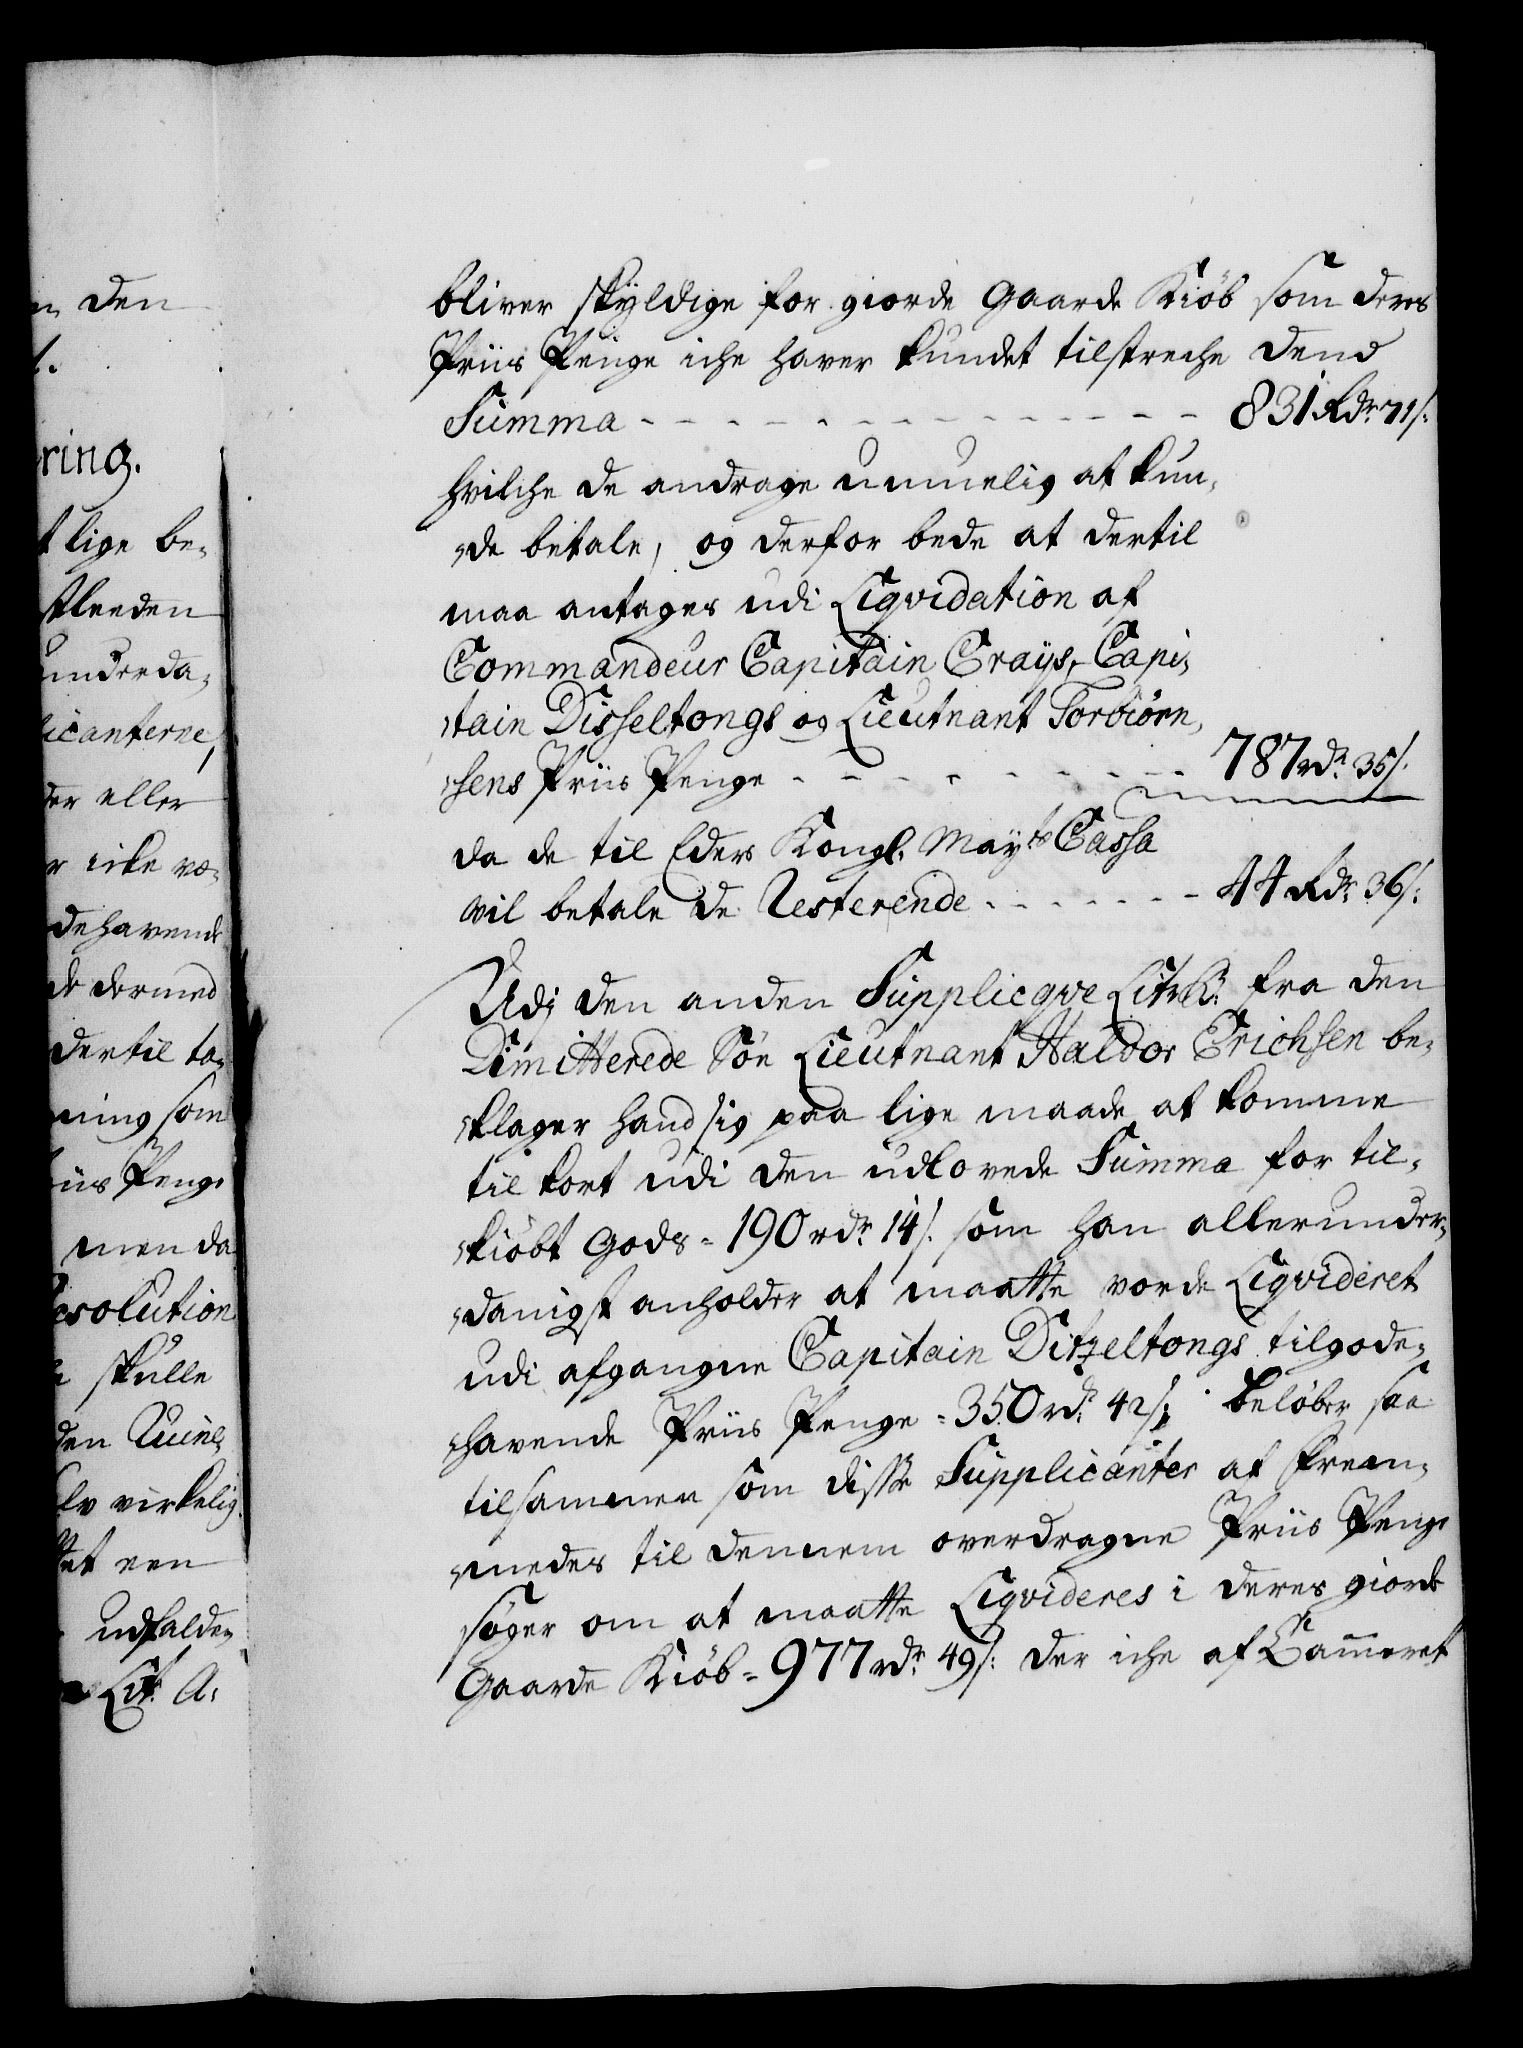 n den
t.
ring.
t lige be-
underda-
licanterne,
der eller
r icke væ-
dehavende
de dermed
dertil ta-
ning som
iis Penge
men da
esolution
skulle
den Ruine,
lv virkelig
tet een
udfalden
Litr. A:
bliver skyldige for giorde Gaarde Kiöb som deres
Priis Penge iche haver kundet tilstreche dend
Summa - - - - - - - - - - - - - - - 831 Rdr. 71 s:
hvilche de andrage umuelig at kun-
de betale, og derfor bede at dertil
maa antages udi Liqvidation af
Commandeur Capitain Crays, Capi-
tain Disseltongs og Lieutnant Torbiörn-
sens Priis Penge - - - - - - - - - 787 rdr. 35 s.
da de til Eders Kongl. Mayts Cassa
vil betale de Resterende - - - - - - - 44 Rdr. 36 s:
Udj den anden Supplicqve Litr. B: fra den
Dimitterede Söe Lieutnant Haldor Erichsen be-
klager hand sig paa lige maade at komme
til kort udi den udlovede Summa for til-
kiöbt Gods = 190 rdr. 14 s. som han allerunder-
danigst anholder at maatte vorde Liqvideret
udi afgangne Capitain Ditzeltongs tilgode-
havende Priis Penge = 350 rdr. 42 s: beløber saa
tilsammen som disse Supplicanter af frem-
medes til dennem overdragne Priis Penge
söger om at maatte Liqvideres i deres giorde
Gaarde Kiöb = 977 rdr. 49 s: der iche af Cammeret